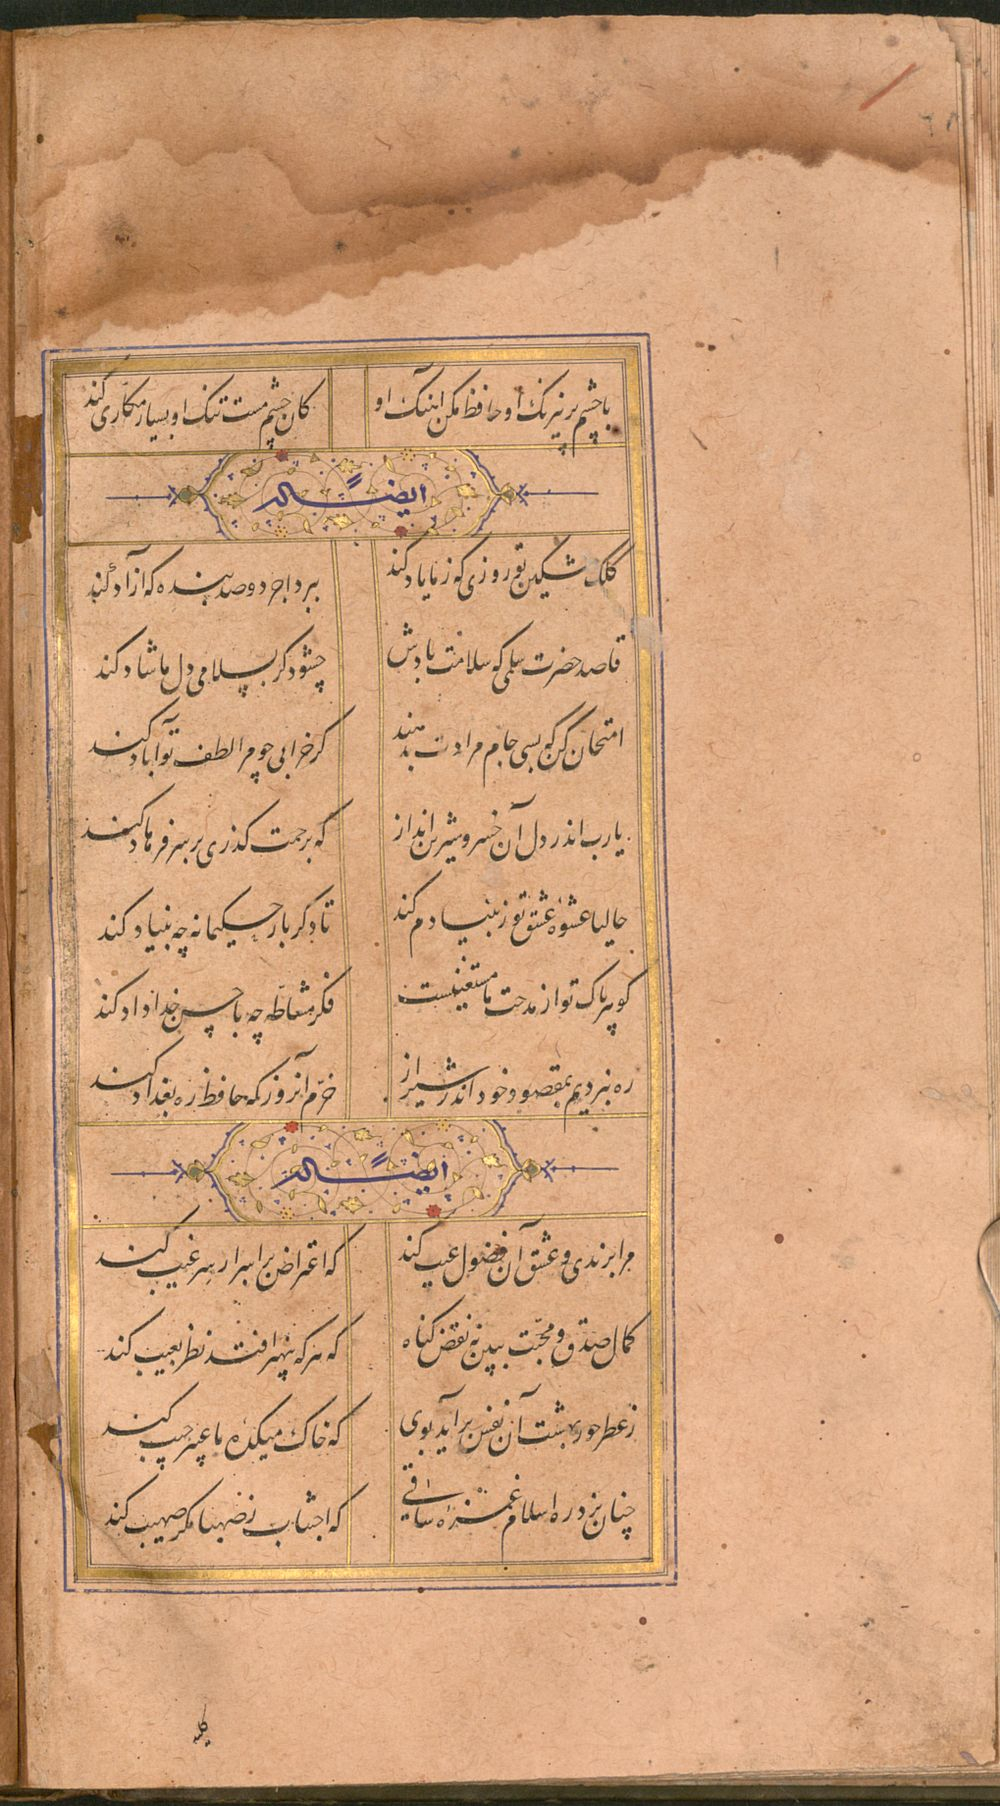 با چشم پر نیرنک او حافظ مکن آهنک او کان چشم مست تنک او بسیار مکاری کند
ایضاً له
کلک مشکین تو روزی که ز ما یاد کند ببرد اجر دو صد بنده که آزاد کند
قاصد حضرت سلمی که سلامت بادش چشود کر بسلامی دل ما شاد کند
امتحان کن که بسی جام مرادت بدهند کر خرابی چو مرا لطف تو آباد کند
یارب اندر دل آن خسرو شیرین انداز که برحمت کذری بر سر فرهاد کند
حالیا عشوهٔ عشق تو ز بنیادم کند تا دکر بار حکیمانه چه بنیاد کند
کوهر پاک تو از مدحت ما مستغنیست فکر مشاطه چه با حسن خداداد کند
ره نبردیم بمقصود خود اندر شیراز خرّم آنروز که حافظ ره بغداد کند
ایضاً له
مرا برندی و عشق آن فضول عیب کند که اعتراض بر اسرار سر غیب کند
کمال صدق و محبّت ببین نه نقص کناه که هر که بیهنر افتد نظر بعیب کند
ز عطر حور بهشت آن نفس برآید بوی که خاک میکدهٔ ما عبیر جیب کند
چنان بزد ره اسلام غمزهٔ ساقی که اجتناب ز صهبا مکر صهیب کند
کلید